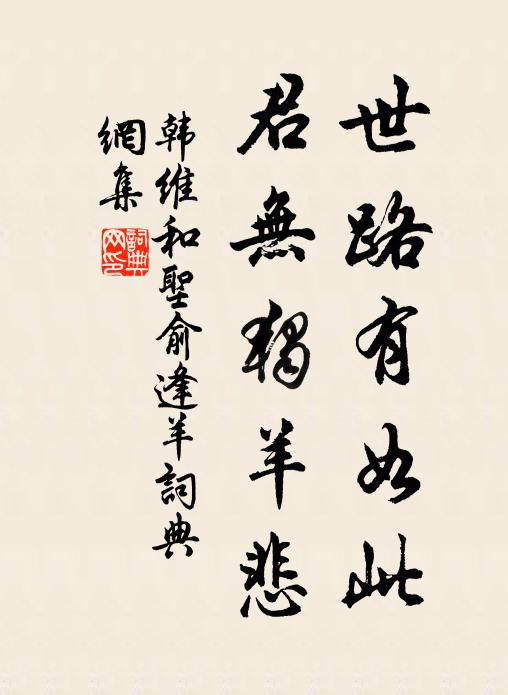 世路有如此
君無獨羊悲
韓維和聖俞逢羊詞典
網集
詞典
网印